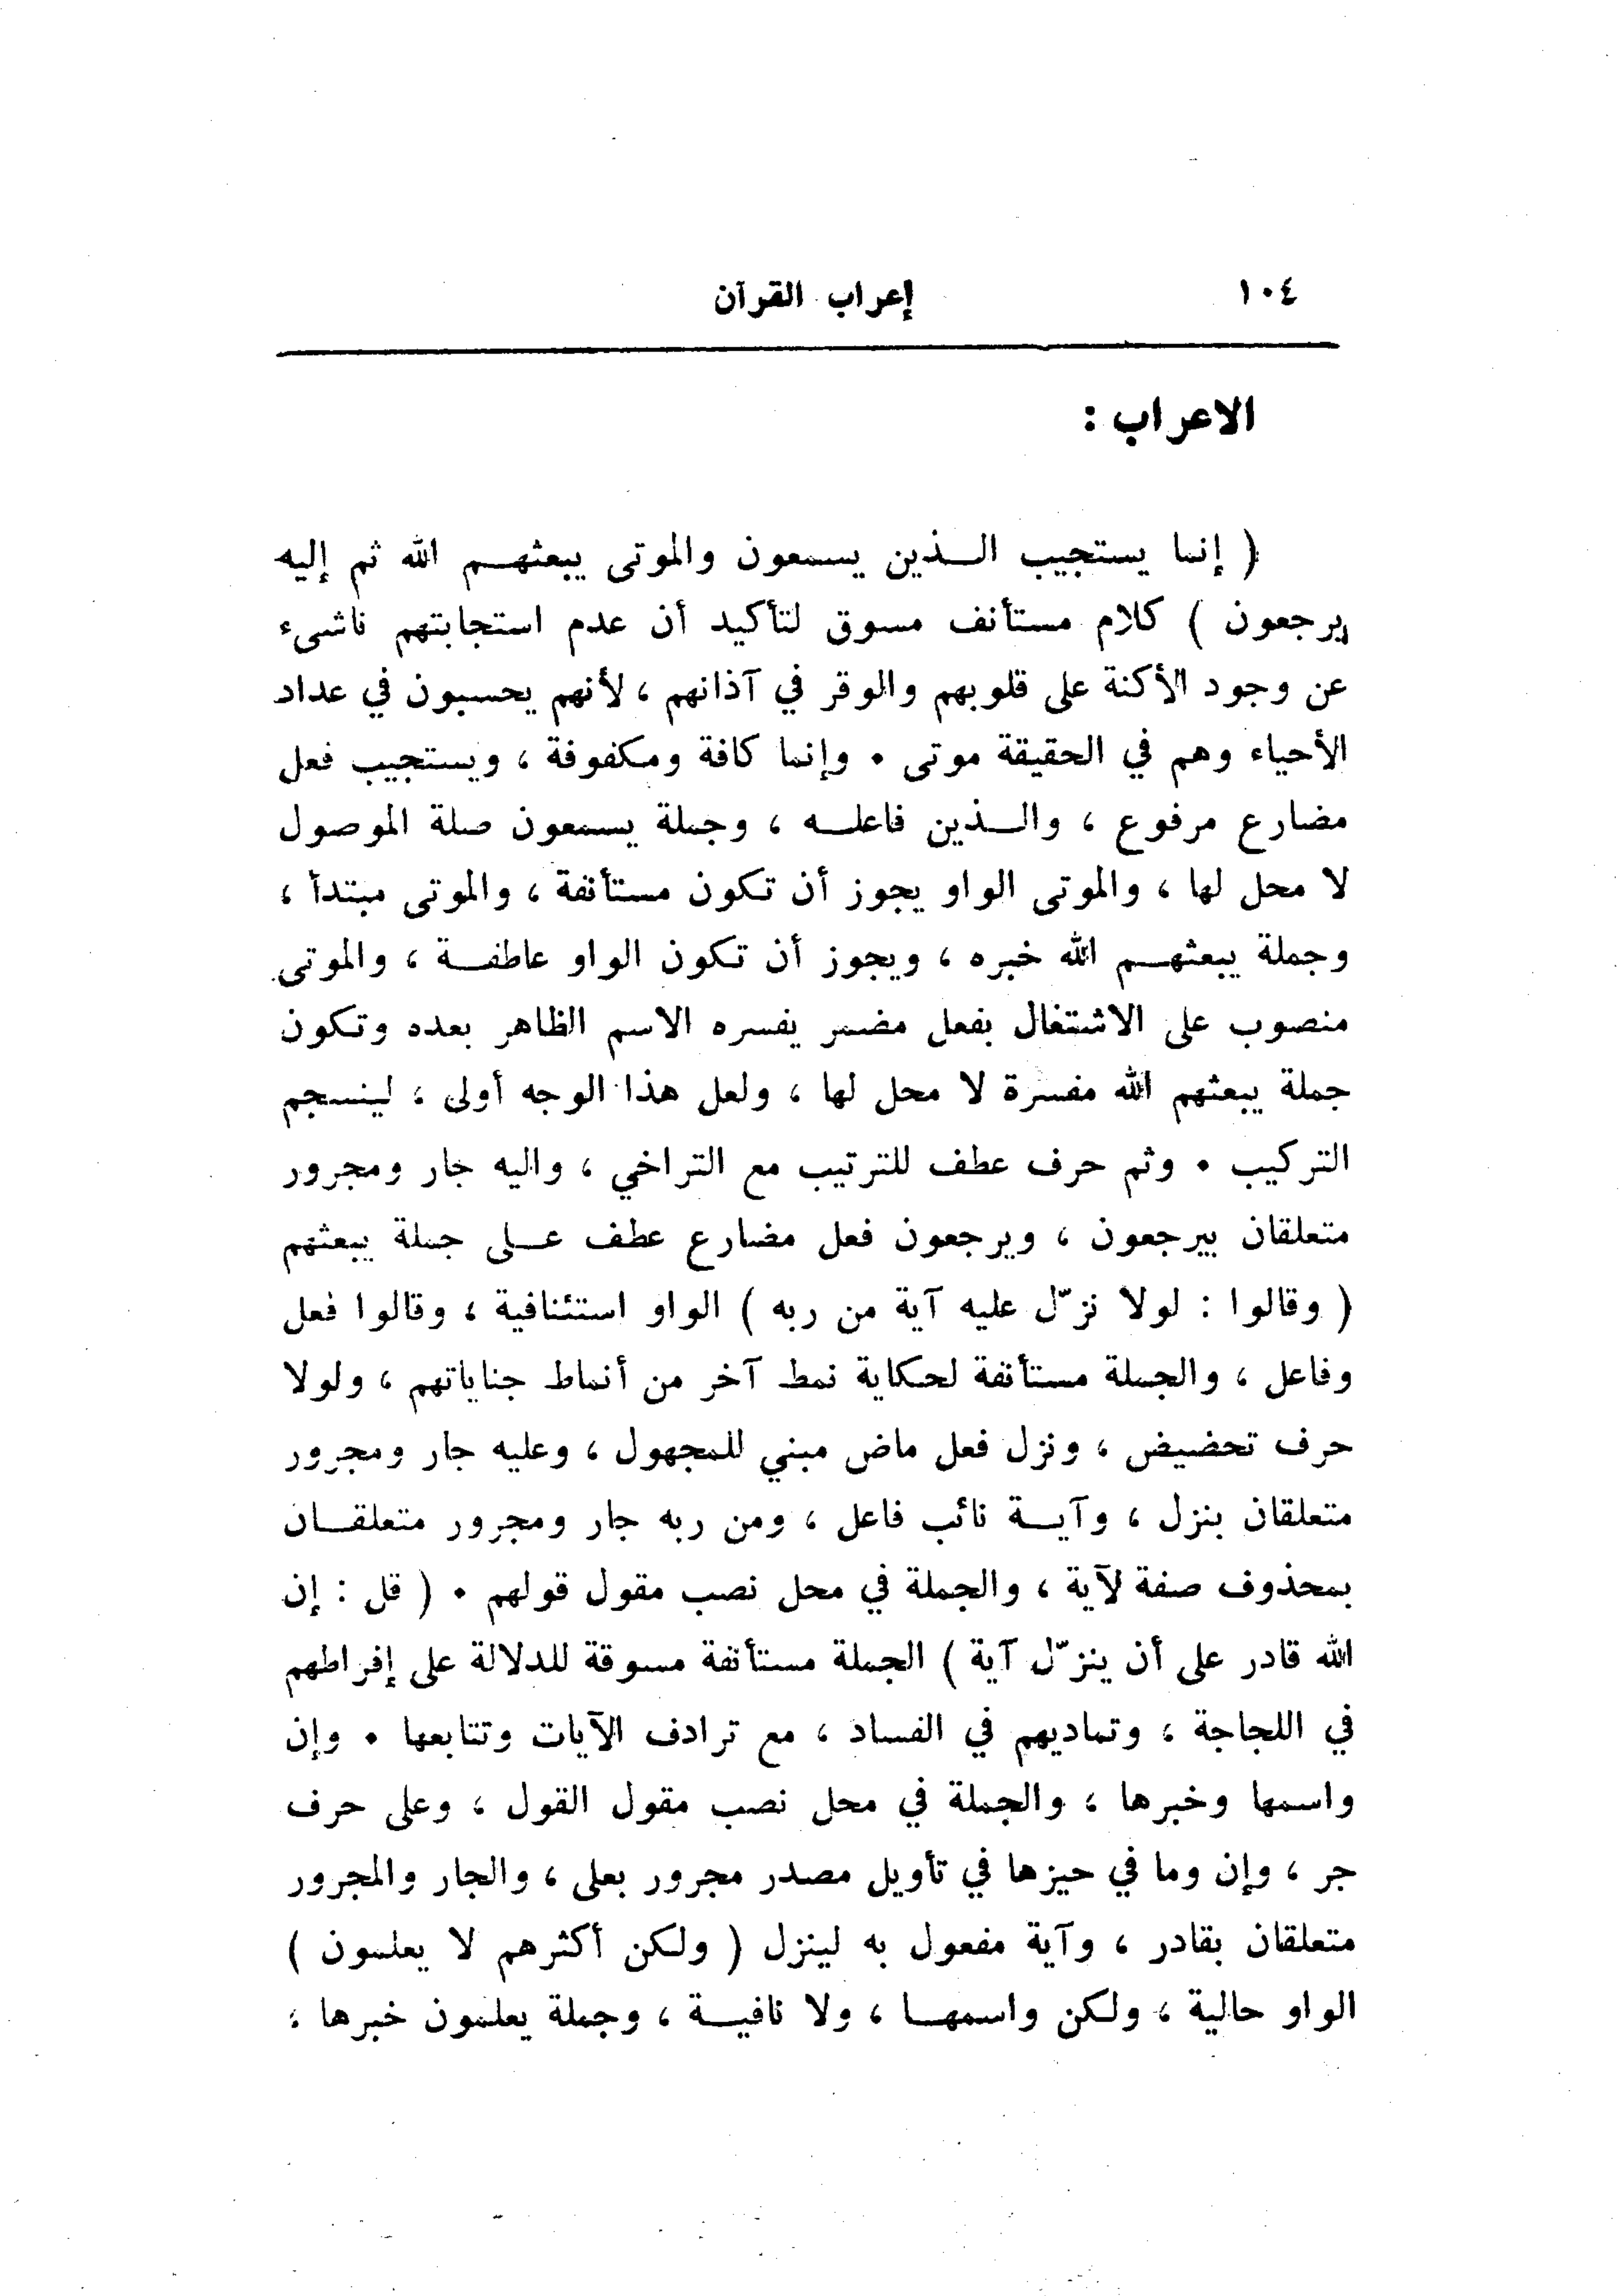 ١٠٤ إعراب القرآن
الاعراب :
( إنما يستجيب الـذين يسمعون والموتى يبعثهـم الله ثم إليه
يرجعون ) كلام مستأنف مسوق لتأكيد أن عدم استجابتهم ناشىء
عن وجود الأكنة على قلوبهم والوقر في آذانهم ، لأنهم يحسبون في عداد
الأحياء وهم في الحقيقة موتى ٠ وإنما كافة ومكفوفة ، ويستجيب فعل
مضارع مرفوع ، والـذين فاعلـه ، وجملة يسمعون صلة الموصول
لا محل لها ، والموتى الواو يجوز أن تكون مستأنفة ، والموتى مبتدأ ،
وجملة يبعثهـم الله خبره ، ويجوز أن تكون الواو عاطفـة ، والموتى
منصوب على الاشتغال بفعل مضمر يفسره الاسم الظاهر بعده وتكون
جملة يبعثهم الله مفسرة لا محل لها ، ولعل هذا الوجه أولى ، لينسجم
التركيب ٠ وثم حرف عطف للترتيب مع التراخي ، واليه جار ومجرور
متعلقان بيرجعون ، ويرجعون فعل مضارع عطف عـلى جملة يبعثهم
( وقالوا : لولا نزّل عليه آية من ربه ) الواو استئنافية ، وقالوا فعل
وفاعل ، والجملة مستأنفة لحكاية نمط آخر من أنماط جناياتهم ، ولولا
حرف تحضيض ، ونزل فعل ماض مبني للمجهول ، وعليه جار ومجرور
متعلقان بنزل ، وآيـة نائب فاعل ، ومن ربه جار ومجرور متعلقـان
بمحذوف صفة لآية ، والجملة في محل نصب مقول قولهم ٠ ( قل : إن
الله قادر على أن ينزّل آية ) الجملة مستأنفة مسوقة للدلالة على إفراطهم
في اللجاجة ، وتماديهم في الفساد ، مع ترادف الآيات وتتابعها ٠ وإن
واسمها وخبرها ، والجملة في محل نصب مقول القول ، وعلى حرف
جر ، وإن وما في حيزها في تأويل مصدر مجرور بعلى ، والجار والمجرور
متعلقان بقادر ، وآية مفعول به لينزل ( ولكن أكثرهم لا يعلمون )
الواو حالية ، ولكن واسمهـا ، ولا نافيـة ، وجملة يعلمون خبرها ،